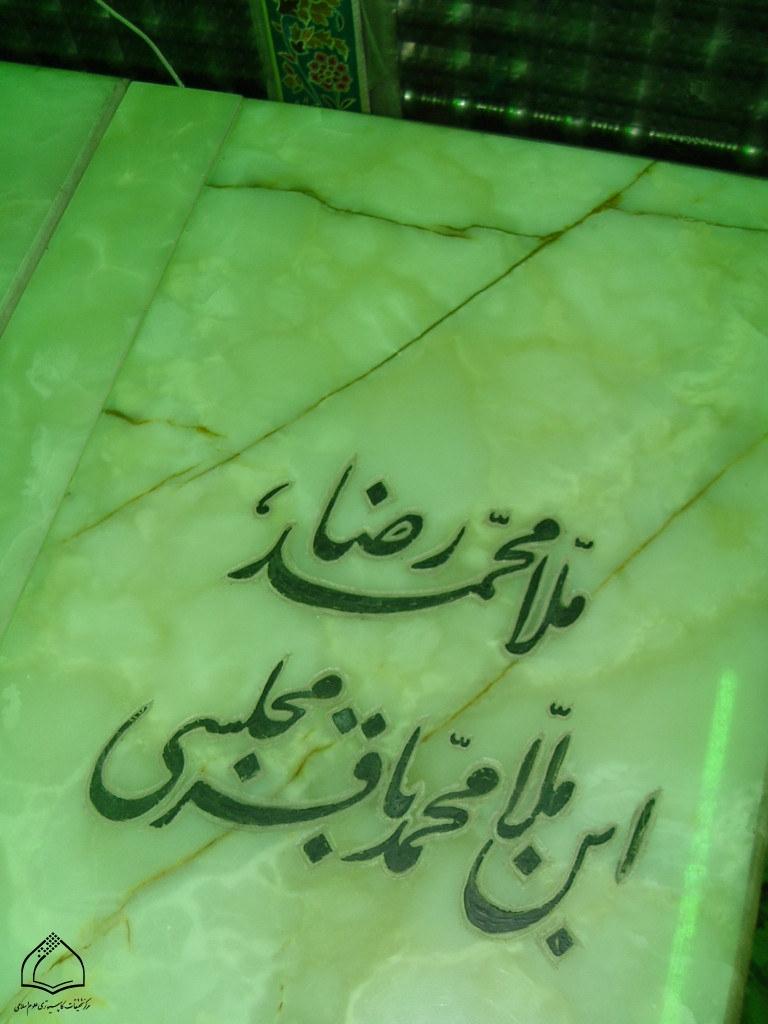 ملّا محمّد رضا،
ابن ملّا محمّد باقر مجلسی
مرکز تحقیقات کامپیوتری علوم اسلامی